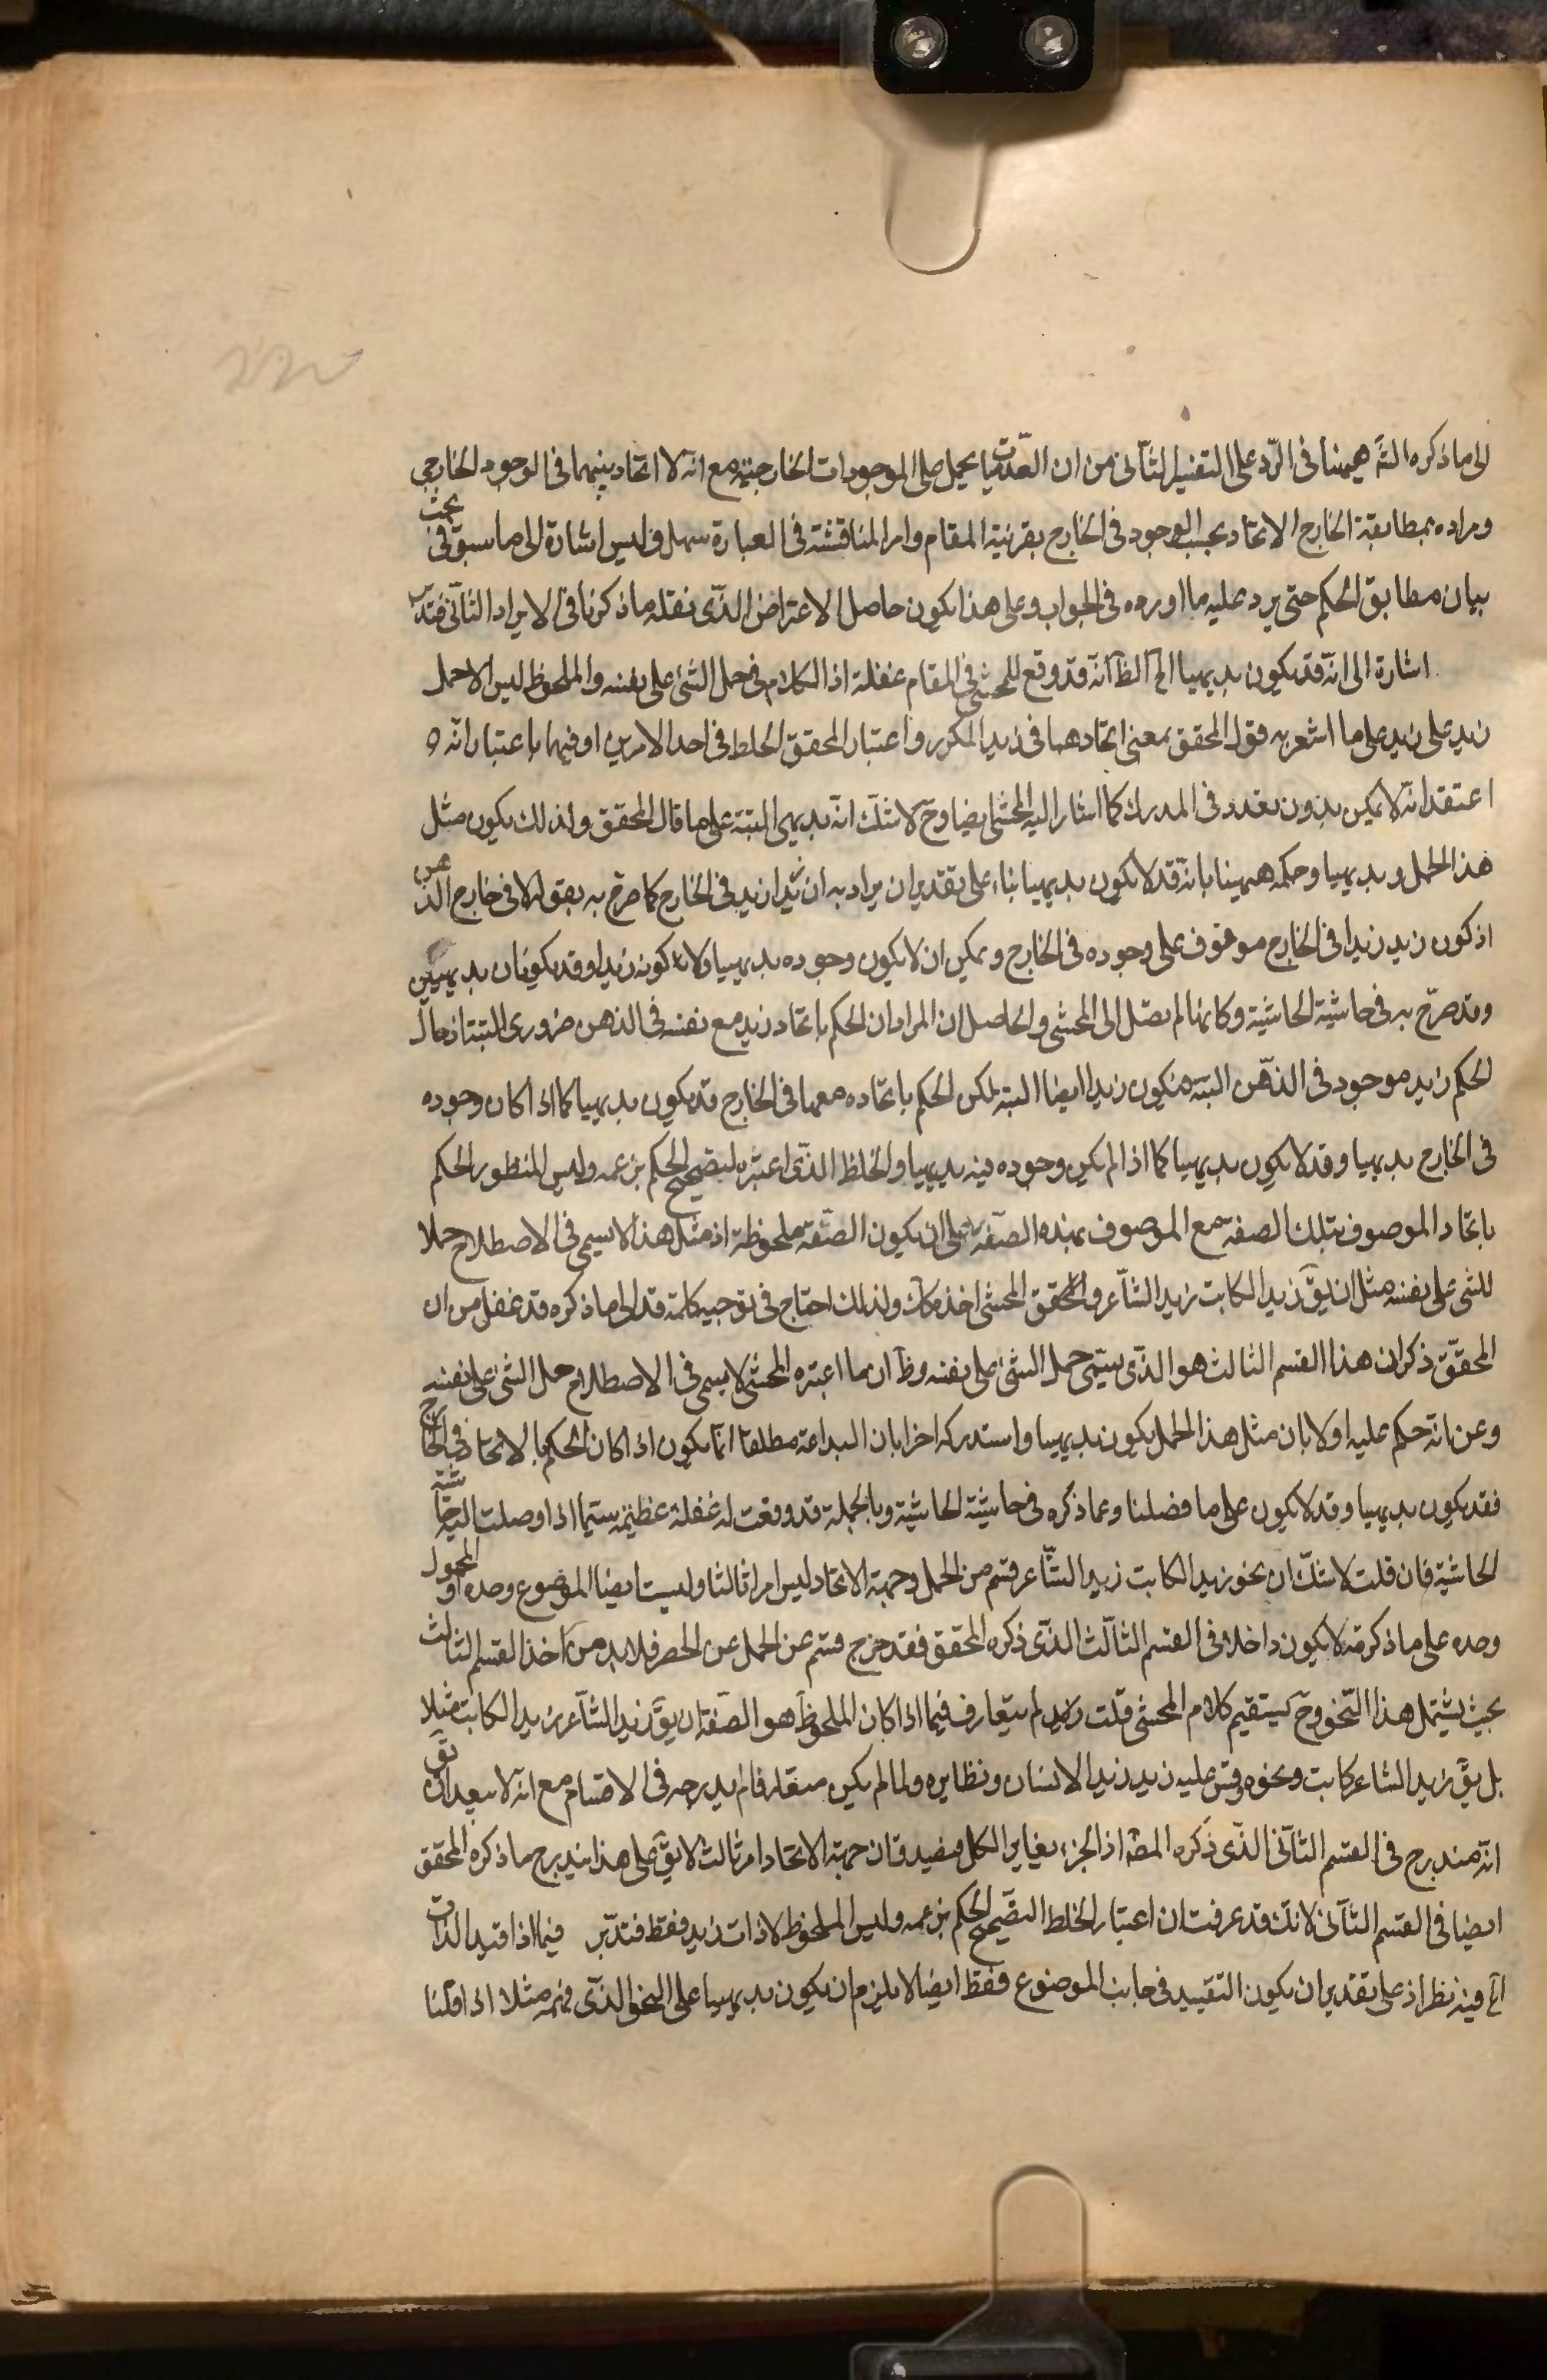 الى ما ذكره الشه هيهنا فى الرّد على التفسير الثآنى من ان العدميّات يحمل على الموجودات الخارجيّة مع انّه لا اتحاد بينهما فى الوجود الخارجى
ومراده بمطابقة الخارج الاتحاد بحسب الوجود فى الخارج بقرنية المقام وامر المناقشة فى العبارة سهل وليس اشارة الى ما سبق فى بحث
بيان مطابق الحكم حتى يرد عليه ما اورده فى الجواب وعلى هذا يكون حاصل الاعتراض الذّى نقله ما ذكرنا فى الايراد الثآنى فتدبّر
اشارة الى انّه قد يكون بديهيا الخ الظآ انّه قد وقع للمحشى فى المقام غفلة اذ الكلام فى حمل الشئ على نفسه والملحوظ ليس الا حمل
زيد على زيد على ما اشعر به قول المحقق بمعنى اتحادهما فى زيد المكرر واعتبار المحقق الخلط فى احد الامرين او فيهما باعتبار انّه
اعتقد انّه لا يمكن بدون تعدد فى المدرك كما اشار اليه المحشى ايضا وحّ لا شكّ انّه بديهى البتة على ما قال المحقق ولذلك يكون مثل
هذا الحمل بديهيا وحكمه هيهنا بانّه قد لا يكون بديهيا بناء على تقدير ان يراد به ان زيدا زيد فى الخارج كما صرّح به بقوله لا فى خارج الذهن
اذ كون زيد زيدا فى الخارج موقوف على وجوده فى الخارج ويمكن ان لا يكون وجوده بديهيا ولا كونه زيدا وقد يكونان بديهيين
وقد صرّح به فى حاشية الحاشية وكانها لم تصل الى المحشى والحاصل ان المراد ان الحكم باتحاد زيد مع نفسه فى الذهن ضرورى البتة اذ حال
الحكم زيد موجود فى الذهّن البتة فيكون زيدا ايضا البتة لكن الحكم باتحاده معها فى الخارج قد يكون بديهيا كما اذا كان وجوده
فى الخارج بديهيا وقد لا يكون بديهيا كما اذا لم يكن وجوده فيه بديهيا والخلط الذّى اعتبره لتصحيح الحكم بزعمه وليس المنظور الحكم
باتحاد الموصوف بتلك الصفة مع الموصوف بهذه الصّفة على ان يكون الصّفة ملحوظة اذ مثل هذا لا يسمى فى الاصطلاح حملا
للشئ على نفسه مثل ان يقّ زيد الكاتب زيد الشآعر والمحقق المحشى اخذ كك ولذلك احتاج فى توجيه كلامه قد الى ما ذكره قد غفل من ان
المحقّق ذكر ان هذا القسم الثالث هو الذّى يسمّى حمل الشئ على نفسه وظآ ان ما اعتبره المحشى لا يسمى فى الاصطلاح حمل الشئ على نفسه
وعن انّه حكم عليه اولا بان مثل هذا الحمل يكون بديهيا واستدركه اخرا بان البداهة مطلقا انّما يكون اذا كان الحكم بالاتحاد فى الخارج
فقد يكون بديهيا وقد لا يكون على ما فصلنا وعما ذكره فى حاشية الحاشية وبالجملة قد وقعت له غفلة عظيمة سيّما اذا وصلت اليه حاشية
الحاشية فان قلت لا شكّ ان نحو زيد الكاتب زيد الشّاعر قسم من الحمل وجهة الاتحاد ليس امرا ثالثا وليست ايضا الموضوع وحده او المحمول
وحده على ما ذكرته لا يكون داخلا فى القسم الثآلث الذّى ذكره المحقق فقد خرج قسم عن الحمل عن الحصر فلا بد من اخذ القسم الثالث
بحيث يشتمل هذا النّحو وحّ يستقيم كلام المحشى قلت لم يتعارف فيما اذا كان الملحوظ هو الصّفة ان يقّ زيد الشآعر زيد الكاتب مثلا
بل يقّ زيد الشاعر كاتب ونحوه وقس عليه زيد زيد الانسان ونظايره ولما لم يكن متعارفا لم يدرجه فى الاقسام مع انّه لا يبعد ان يقّ
انّه مندرج فى القسم الثآنى الذّى ذكره المصّ اذ الجزء يغاير الكل فيصدق ان جهة الاتحاد امر ثالث لا يقّ على هذا يندرج ما ذكره المحقق
ايضا فى القسم الثآنى لانّك قد عرفت ان اعتبار الخلط لتصّحيح الحكم بزعمه وليس الملحوظ الا ذات زيد فقط فتدبّر فيما اذا قيد الذات
الخ فيه نظر اذ على تقدير ان يكون التّقييد فى جانب الموضوع فقط ايضا لا يلزم ان يكون بديهيا على النحو الذّى فهمه مثلا اذا قلنا